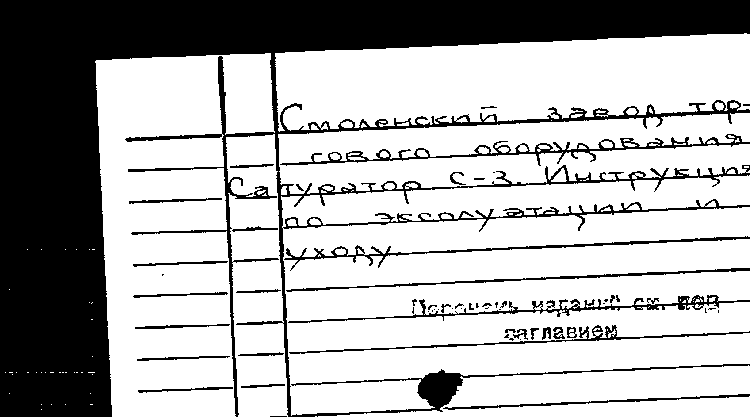 Смоленский завод тор-
гового оборудования
Сатуратор С-3. Инструкция
по эксплуатации и
уходу.
Перечень изданий см. под
заглавием